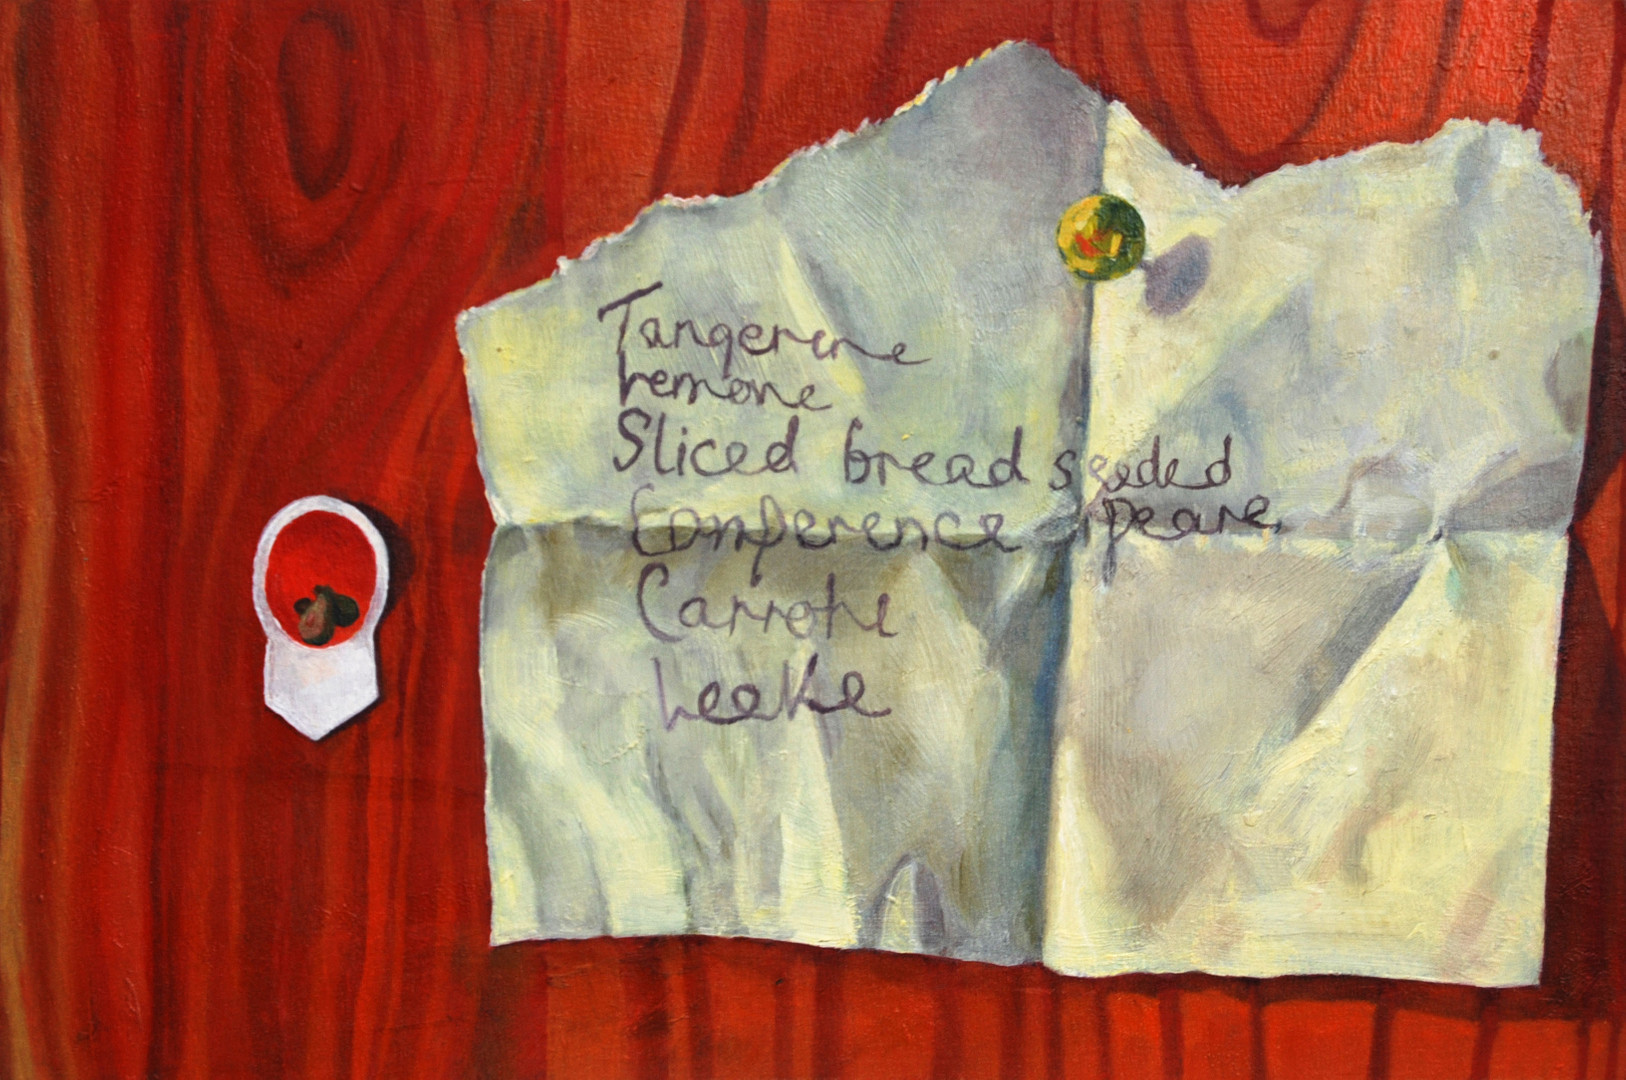 Tangerine
Lemons
Sliced bread seeded
Conference pears
Carrots
Leeks